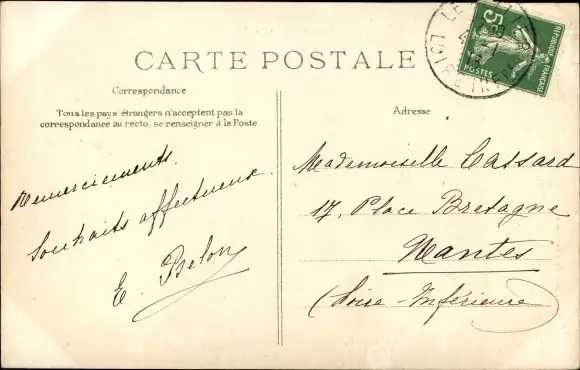 CARTE POSTALE
Correspondance
Tous les pays étrangers n'acceptent pas la
correspondance au recto, se renseigner à la Poste
Remerciements.
Souhaits affectueux.
E. Belon
Adresse
Mademoiselle Cassard
17, Place Bretagne
Nantes
(Loire-Inférieure)
5c
REPUBLIQUE FRANÇAISE
POSTES
LE
LOIRE INFRE